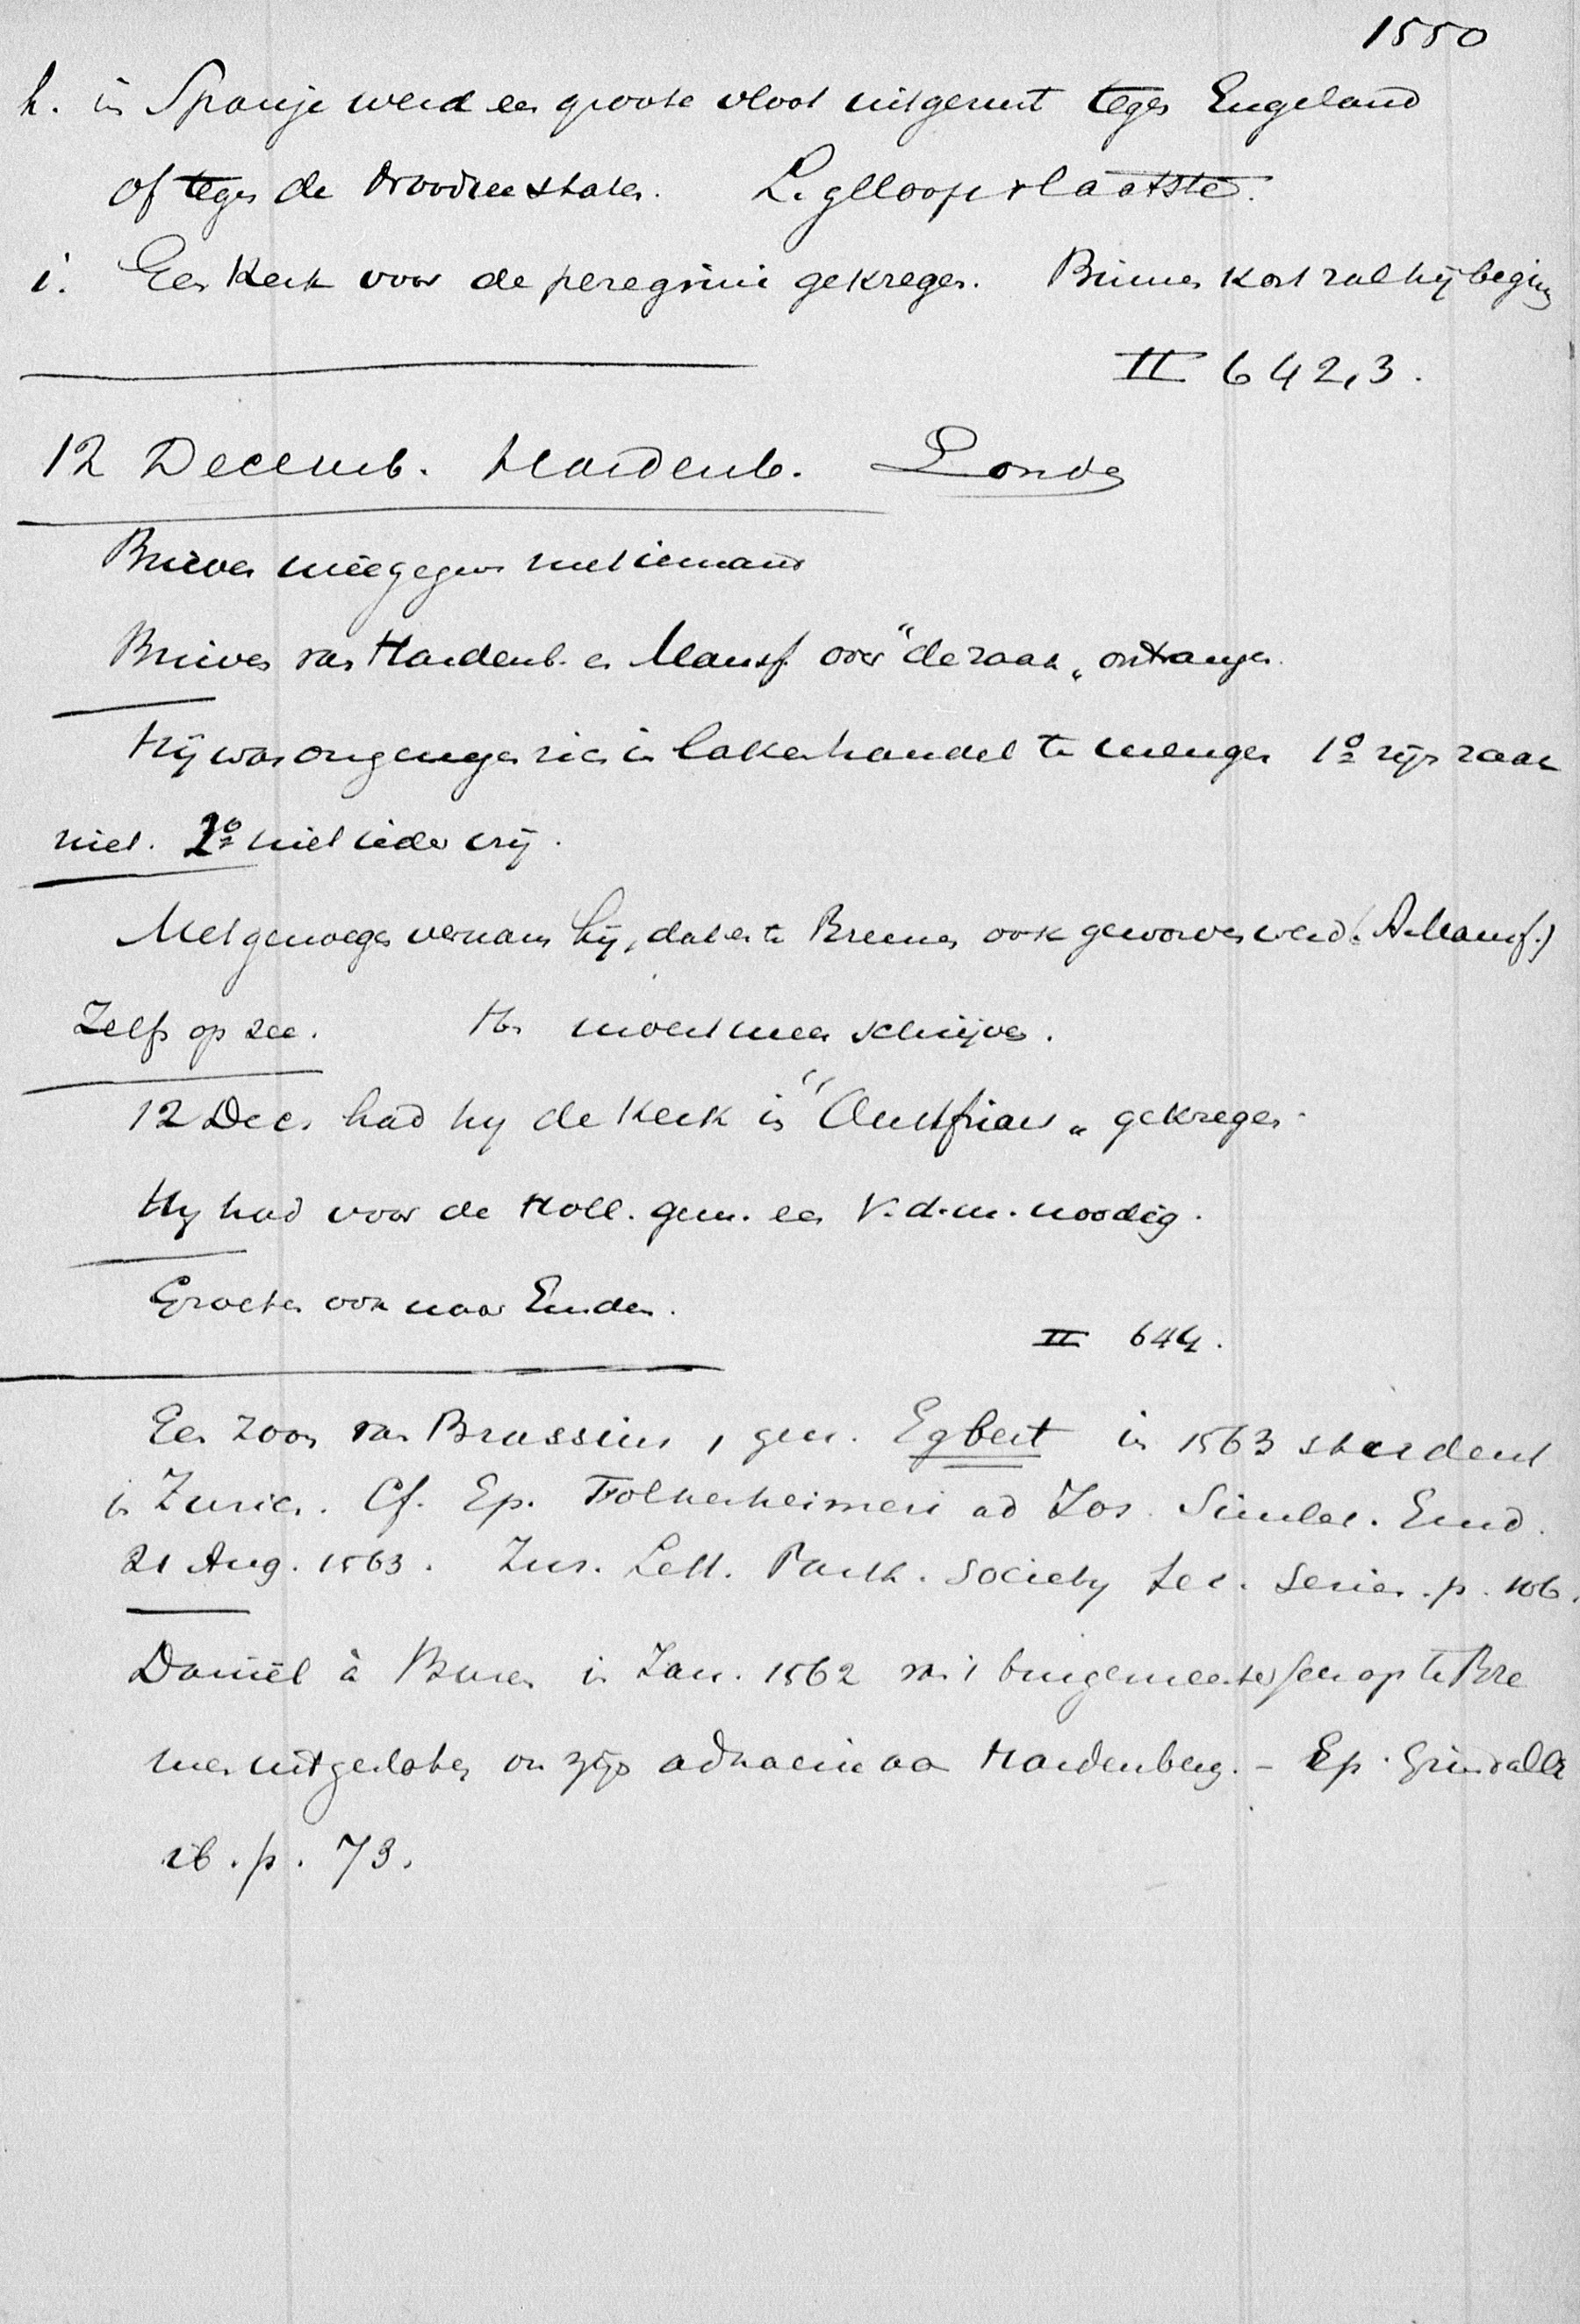 1550
h. in Spanje werd een groote vloot uitgerust tegen Engeland
of tegen de Noordzeestaten. L. gelooft 't laatste.
i. Een Kerk voor de peregrini gekregen. Binnen kort zal hij beginn
II 642,3.
12 Decemb. Hardenb. Londen
Brieven meegegeven met iemand
Brieven van Hardenb. en Mansf. over "de zaak" ontvangen.
Hij was ongenegen zich in lakenhandel te mengen 1º zijn zaak
niet. 2º niet ieder vrij.
Met genoegen vernam hij, dat er te Bremen ook geworven werd (A. Mansf.)
Zelfs op zee. Hb. moest meer schrijven.
12 Dec. had hij de Kerk in "Austfriars" gekregen.
Hij had voor de Holl. gem. een V.d.m. noodig.
Groeten ook naar Emden.
II 644.
Een zoon van Brassius, gen. Egbert in 1563 student
in Zurich. Cf. Ep. Folkerheimeri ad Jos. Simler. Emd.
21 Aug. 1563. Zur. Lett. Park. Society sec. Series. p. 106.
Daniël à Buren in Jan. 1562 van 't burgemeesterschap te Bre
men uitgesloten om zijn adhaesie aan Hardenberg. - Ep. Grindalli
ib. p. 73.